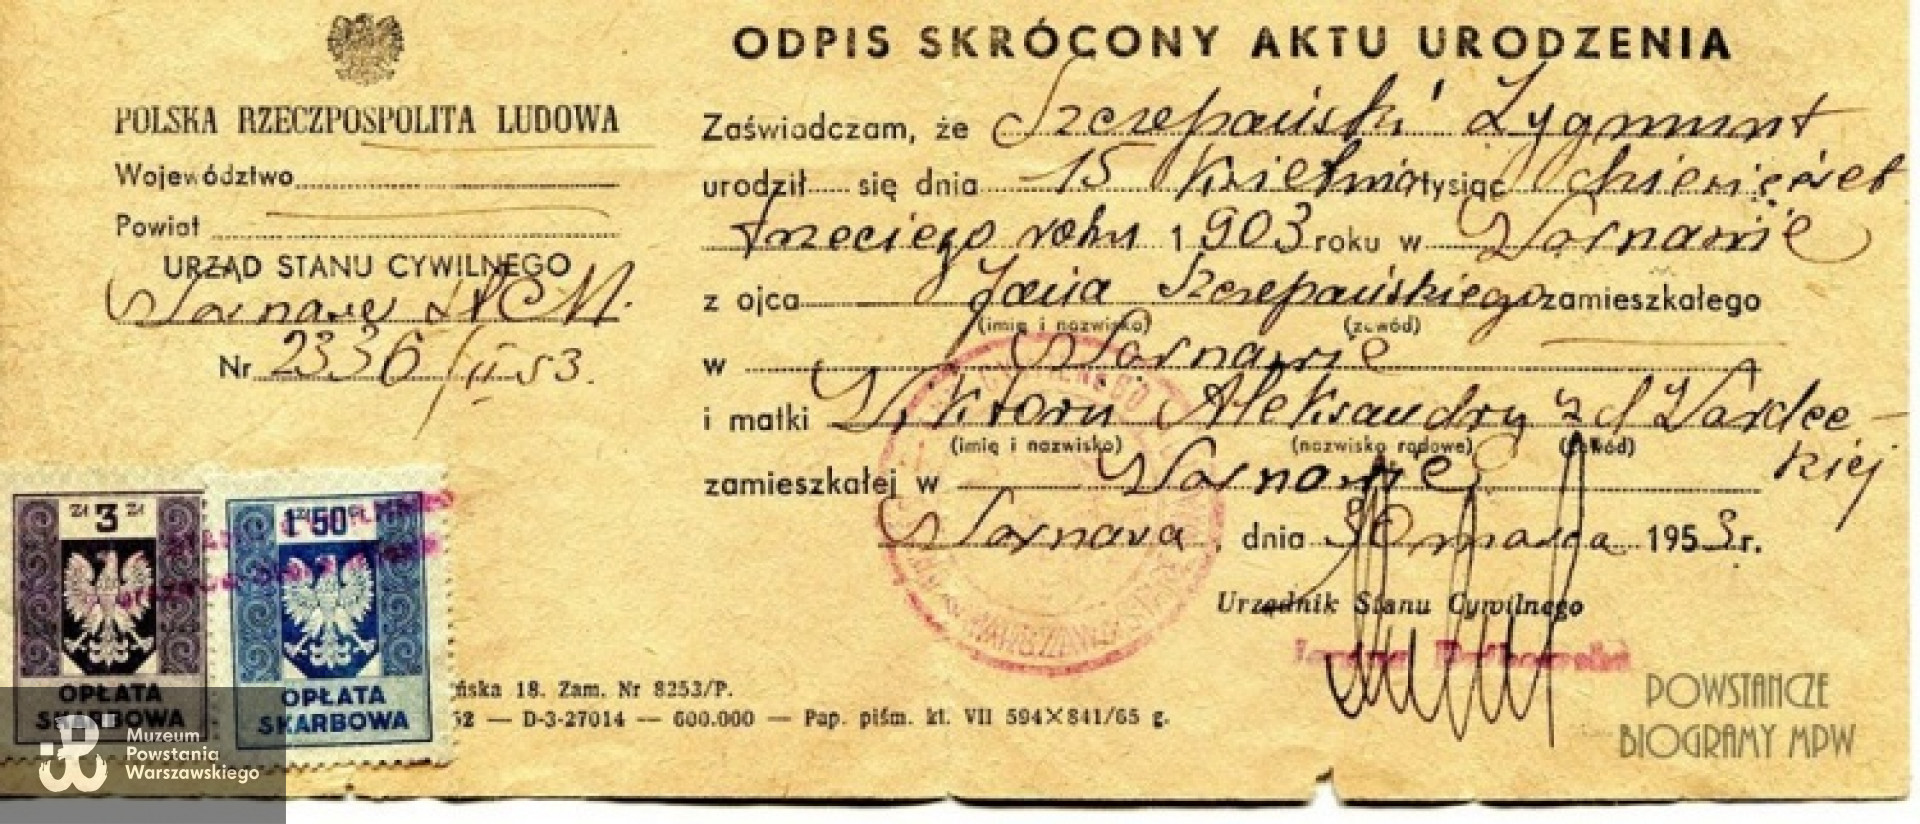 ODPIS SKRÓCONY AKTU URODZENIA
POLSKA RZECZPOSPOLITA LUDOWA
Województwo
Powiat
URZĄD STANU CYWILNEGO
Warszawa
Nr 2336/II 53.
Zaświadczam, że Szczepański Zygmunt
urodził się dnia 15 kwietnia tysiąc dziewięćset
trzeciego roku 1903 roku w Warszawie
z ojca Jana Szczepańskiego zamieszkałego
(imię i nazwisko) (zawód)
w Warszawie
i matki Wiktorii Aleksandry z d
(imię i nazwisko) (nazwisko rodowe) (zawód)
kiej
zamieszkałej w Warszawie
Warszawa, dnia 30 marca 1953 r.
Urzędnik Stanu Cywilnego
zł 3 zł
OPŁATA
SKARBOWA
1 zł 50 gr
OPŁATA
SKARBOWA
ńska 18. Zam. Nr 8253/P.
52 — D-3-27014 — 600.000 — Pap. piśm. kl. VII 594×841/65 g.
Muzeum
Powstania
Warszawskiego
POWSTAŃCZE
BIOGRAMY MPW